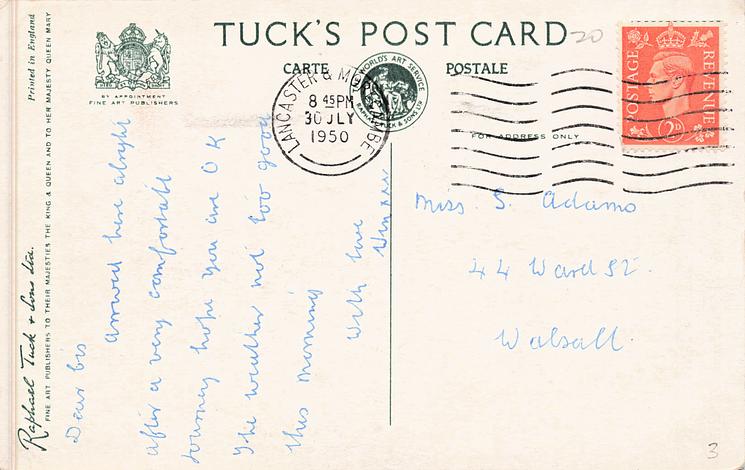 TUCK'S POST CARD
20
CARTE POSTALE
BY APPOINTMENT
FINE ART PUBLISHERS
THE WORLD'S ART SERVICE
RAPHAEL TUCK & SONS LTD
LANCASTER & MORECAMBE
8 45 PM
30 JLY
1950
POSTAGE REVENUE
2D
FOR ADDRESS ONLY
Printed in England
Raphael Tuck & Sons Ltd.
FINE ART PUBLISHERS TO THEIR MAJESTIES THE KING & QUEEN AND TO HER MAJESTY QUEEN MARY
Dear Sis
Arrived here alright
after a very comfortable
Journey hope you are O K
The weather not too good
this morning
With love
Miss S. Adams
44 Ward St.
Walsall.
3